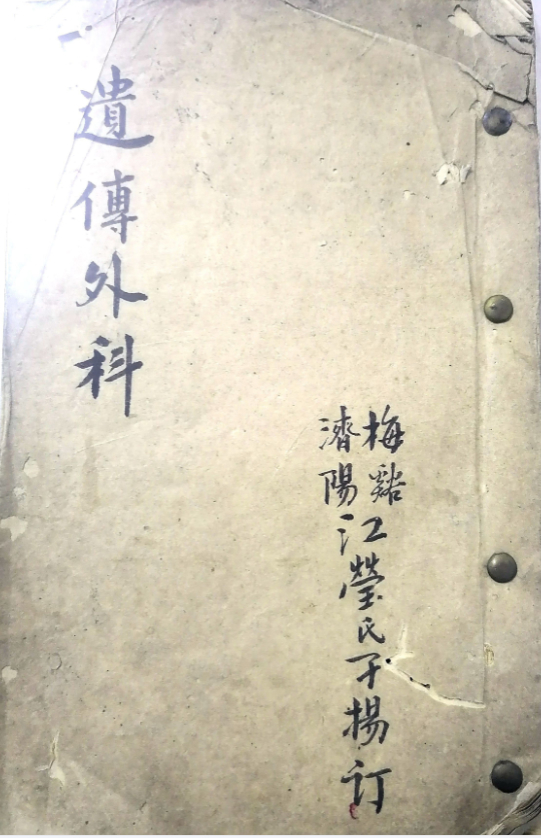 遺傳外科
梅谿
濟陽
江瑩氏子揚訂